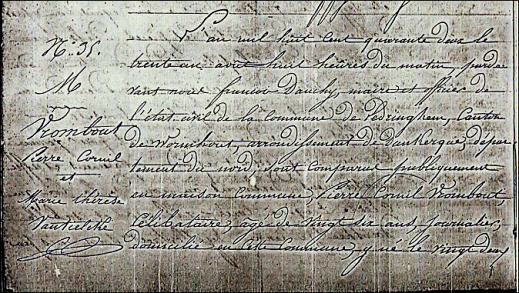 N.: 35.
M
Vrombout
Pierre Cornil
et
Marie thérèse
L'an mil huit cent quarante deux le
trente un août huit heures du matin pardevant nous françois Dauchy, maire et officier de
l'état civil de la commune de Ledringhem, Canton
de Wormhout, arrondissement de Dunkerque, département du nord, sont comparus publiquement
en maison Commune, Pierre Cornil Vrombout,
Célibataire, âgé de vingt six ans, journalier,
domicilié en cette Commune, y né le vingt deux